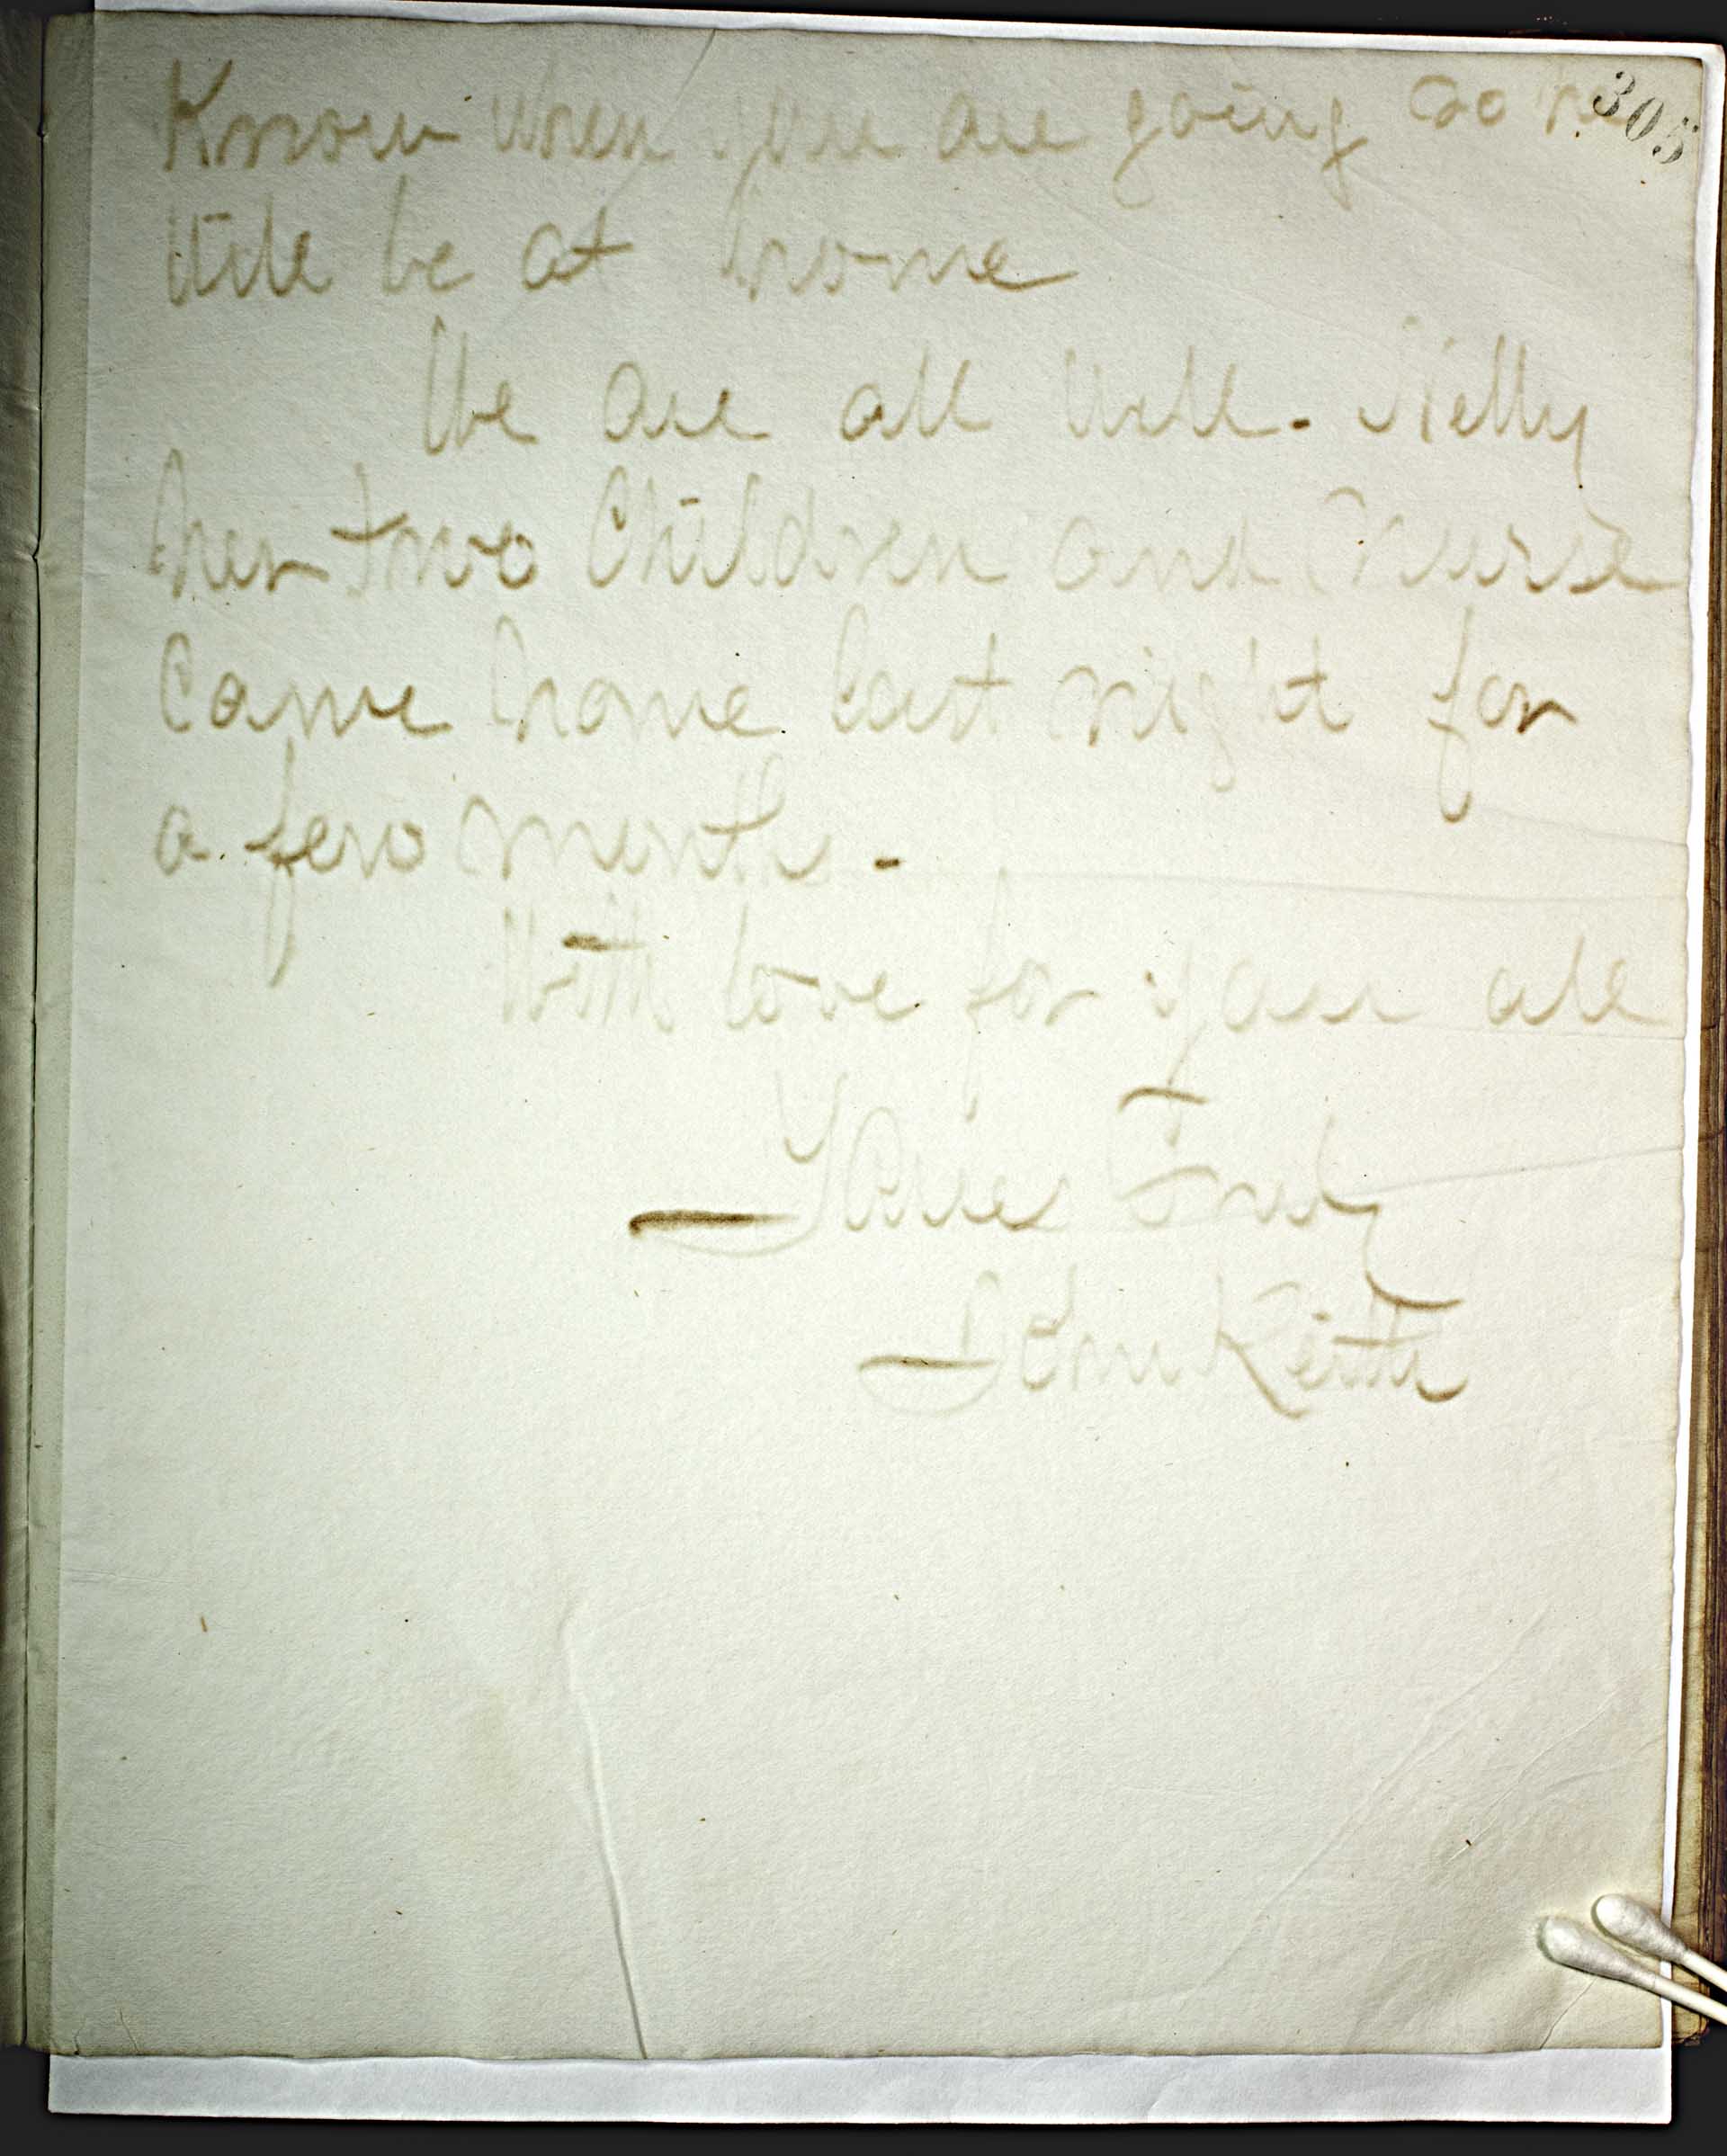 305
Know when you are going so we
Will be at home
We are all Well. Nelly
her two Children and Nurse
Came home last night for
a few months.
With love for you all
Yours Truly
John Keith